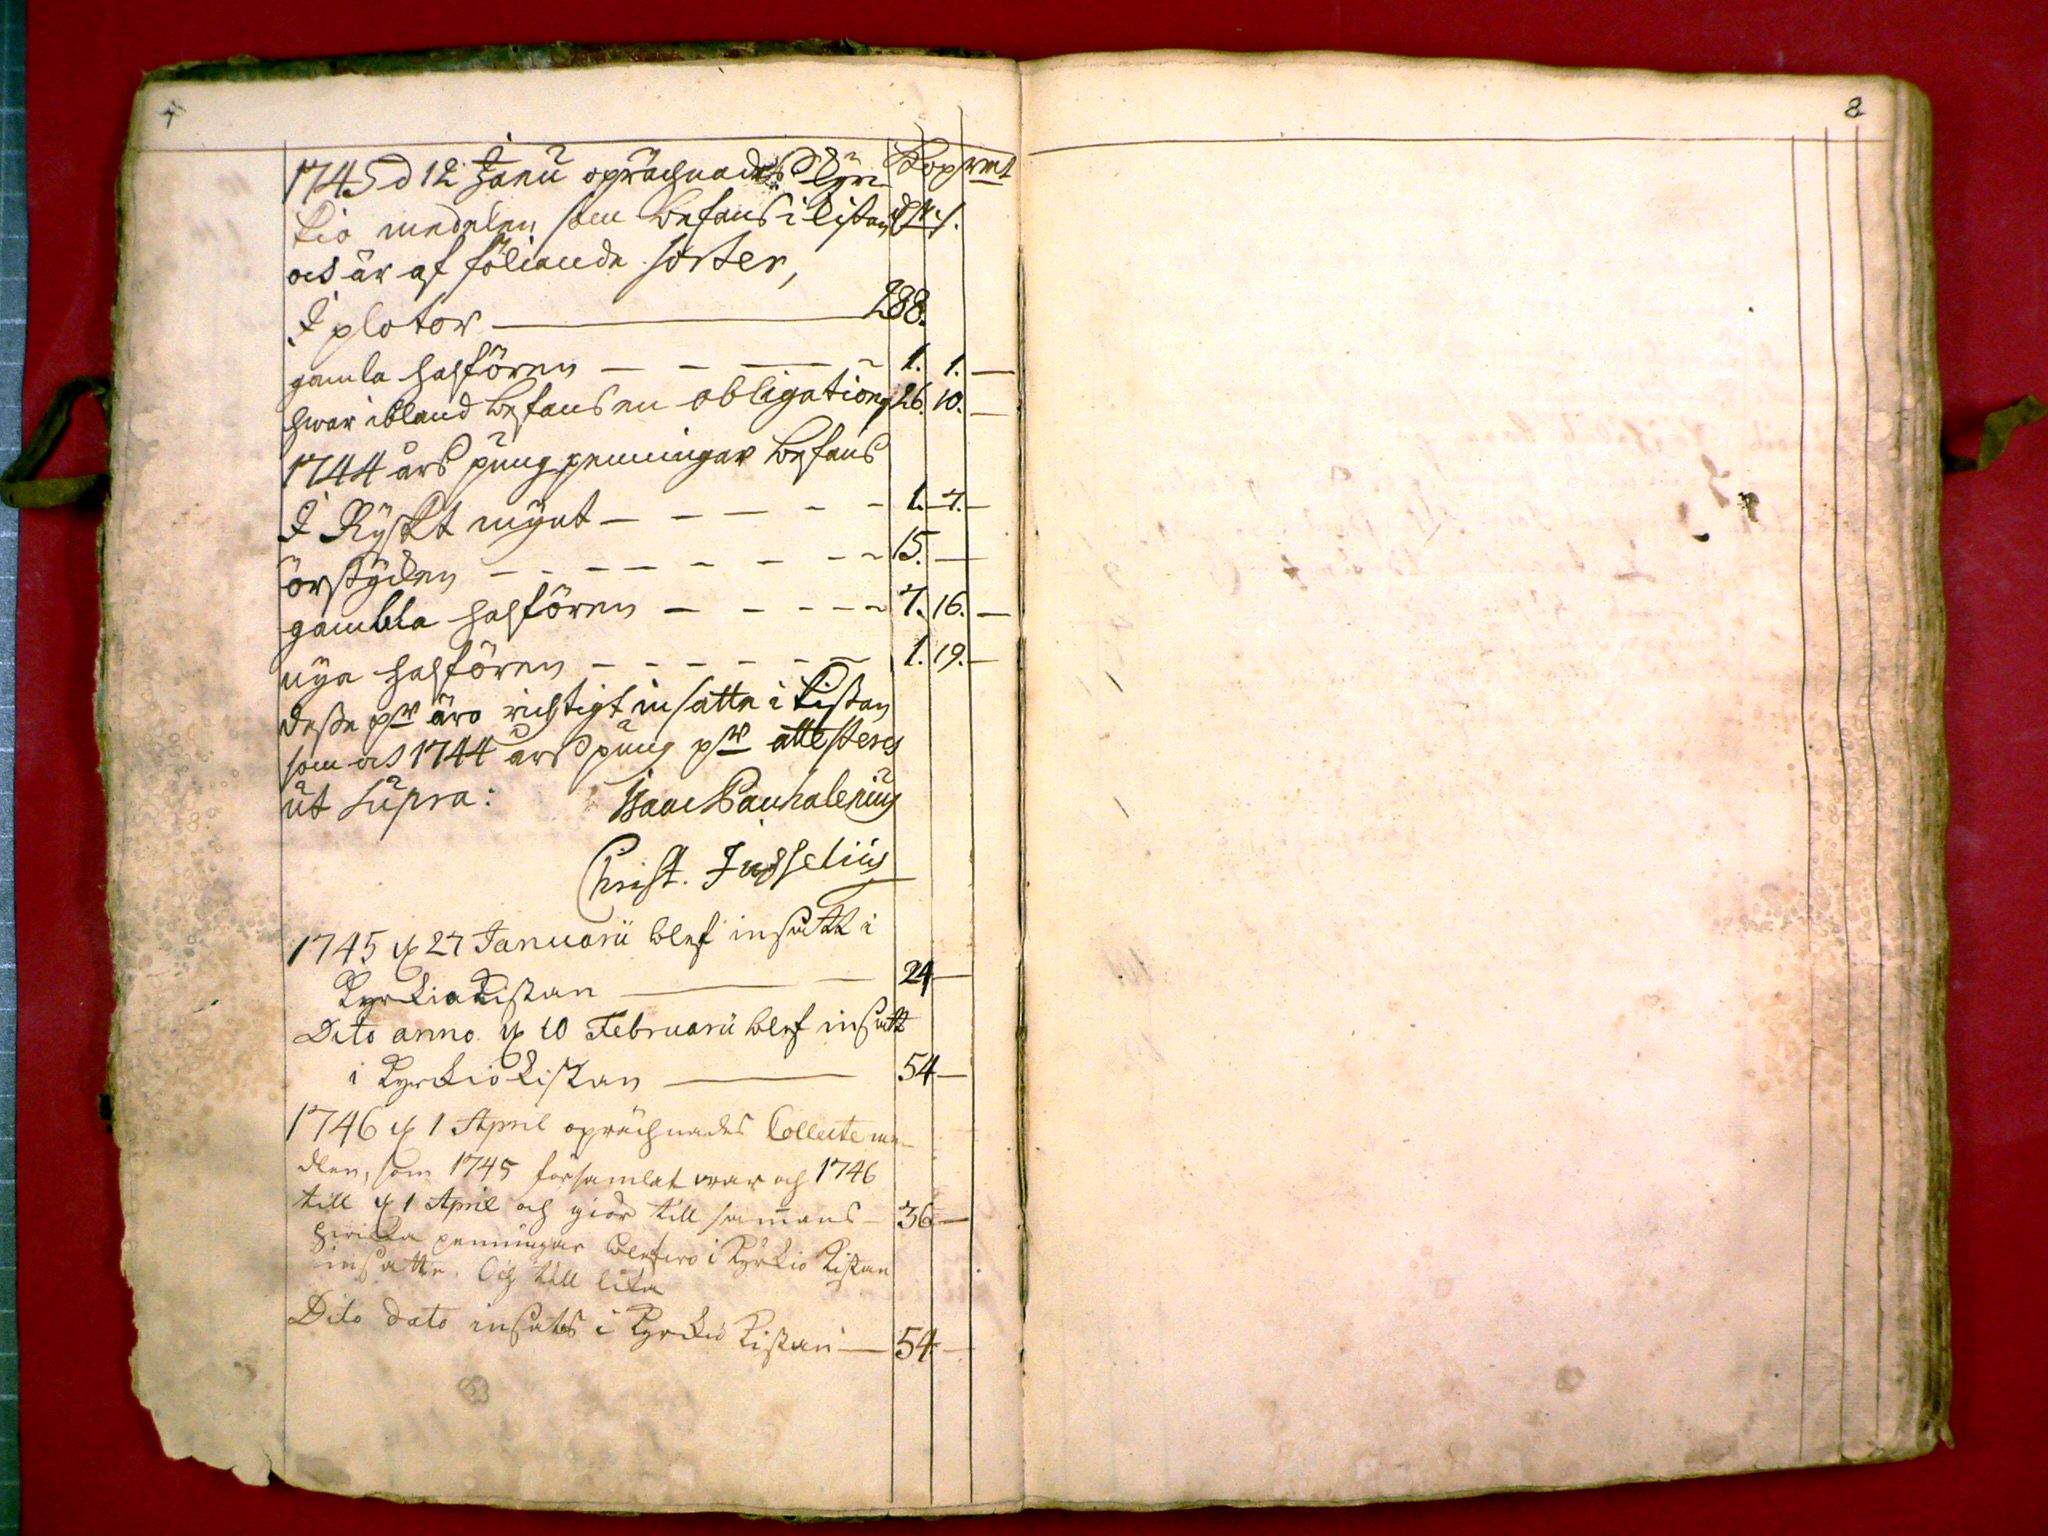 7
8
1745 d 12 Janu oprächnades Kyr-
kio medelen som befans i kistan
och är af föliande sorter,
Kopr mt
I plotor 288.
gamla halfören 1. 1.
hwar ibland befans en obligation 26. 10.
1744 års pung penningar befans
I Ryskt mynt 1. 7.
örstÿcken 15.
gambla halfören 7. 16.
nya halfören 1. 19.
desse pgr äro richtigt insatte i kistan
som och 1744 års pung pgr attesteres
ut supra: Isaac Pauhalenius
Christ. Jusselius
1745 d 27 Januarii blef insatt i
Kyrkiokistan 24
Dito anno d 10 Februarii blef insatt
i Kyrckiokistan 54
1746 d 1 April oprächnades Collecte me-
dlen, som 1745 församlat war och 1746
till d 1 April och giör till sammans 36
hwilka penningar blefwo i Kyrkio kistan
insatte. Och till lika
Dito dato insates i Kyrckio kistan 54